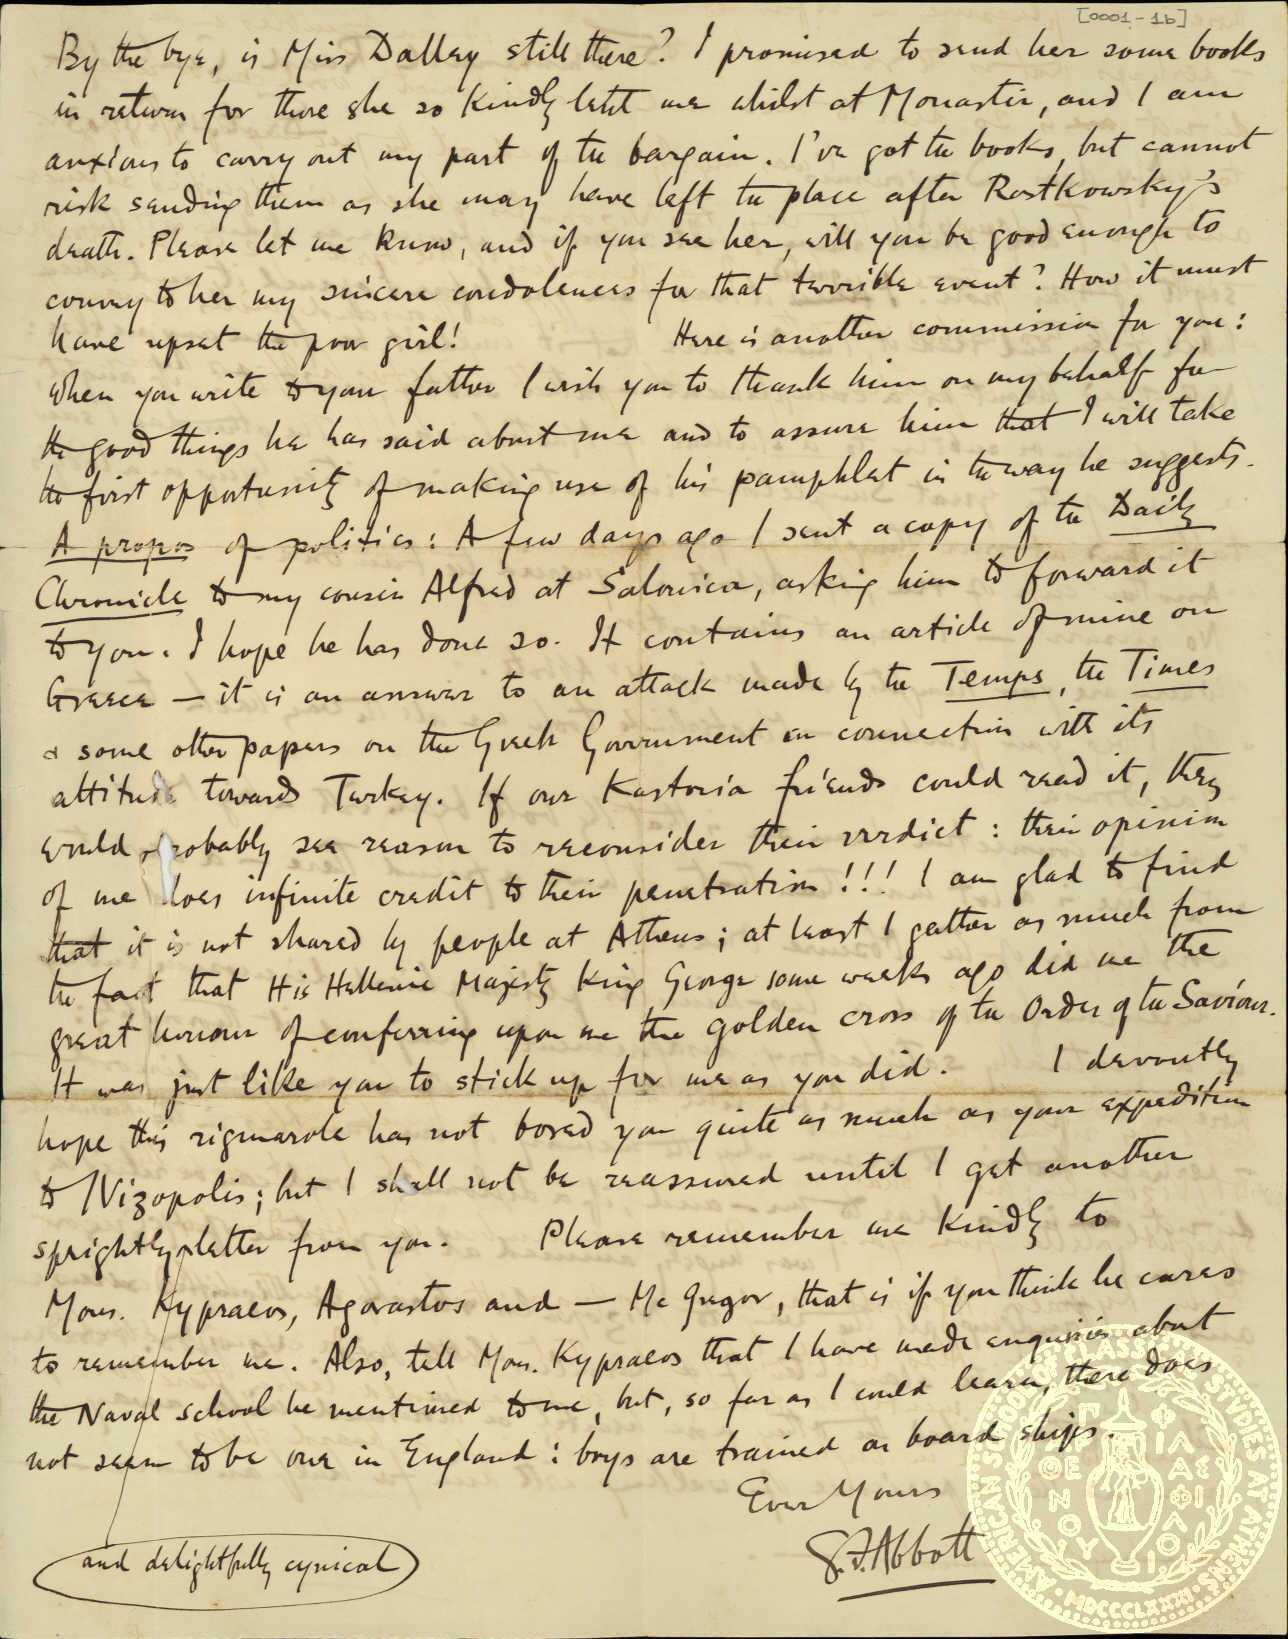 [0001-1b]
By the bye, is Miss Dalley still there? I promised to send her some books
in return for those she so kindly lent me whilst at Monastir, and I am
anxious to carry out my part of the bargain. I've got the books, but cannot
risk sending them as she may have left the place after Rostkowsky's
death. Please let me know, and if you see her, will you be good enough to
convey to her my sincere condolences for that terrible event? How it must
have upset the poor girl! Here is another commission for you:
when you write to your father I wish you to thank him on my behalf for
the good things he has said about me and to assure him that I will take
the first opportunity of making use of his pamphlet in the way he suggests.
A propos of politics: A few days ago I sent a copy of the Daily
Chronicle to my cousin Alfred at Salonica, asking him to forward it
to you. I hope he has done so. It contains an article of mine on
Greece — it is an answer to an attack made by the Temps, the Times
& some other papers on the Greek Government in connection with its
attitude towards Turkey. If our Kastoria friends could read it, they
would probably see reason to reconsider their verdict: their opinion
of me does infinite credit to their penetration!!! I am glad to find
that it is not shared by people at Athens; at least I gather as much from
the fact that His Hellenic Majesty King George some weeks ago did me the
great honour of conferring upon me the golden cross of the Order of the Saviour.
It was just like you to stick up for me as you did. I devoutly
hope this rigmarole has not bored you quite as much as your expedition
to Nizopolis; but I shall not be reassured until I get another
sprightly letter from you. Please remember me kindly to
Mons. Kypraeos, Agorastos and — Mc Gregor, that is if you think he cares
to remember me. Also, tell Mons. Kypraeos that I have made enquiries about
the Naval school he mentioned to me, but, so far as I could learn, there does
not seem to be one in England: boys are trained on board ships.
Ever Yours
G.F. Abbott
and delightfully cynical
AMERICAN SCHOOL OF CLASSICAL STUDIES AT ATHENS
MDCCCLXXXI